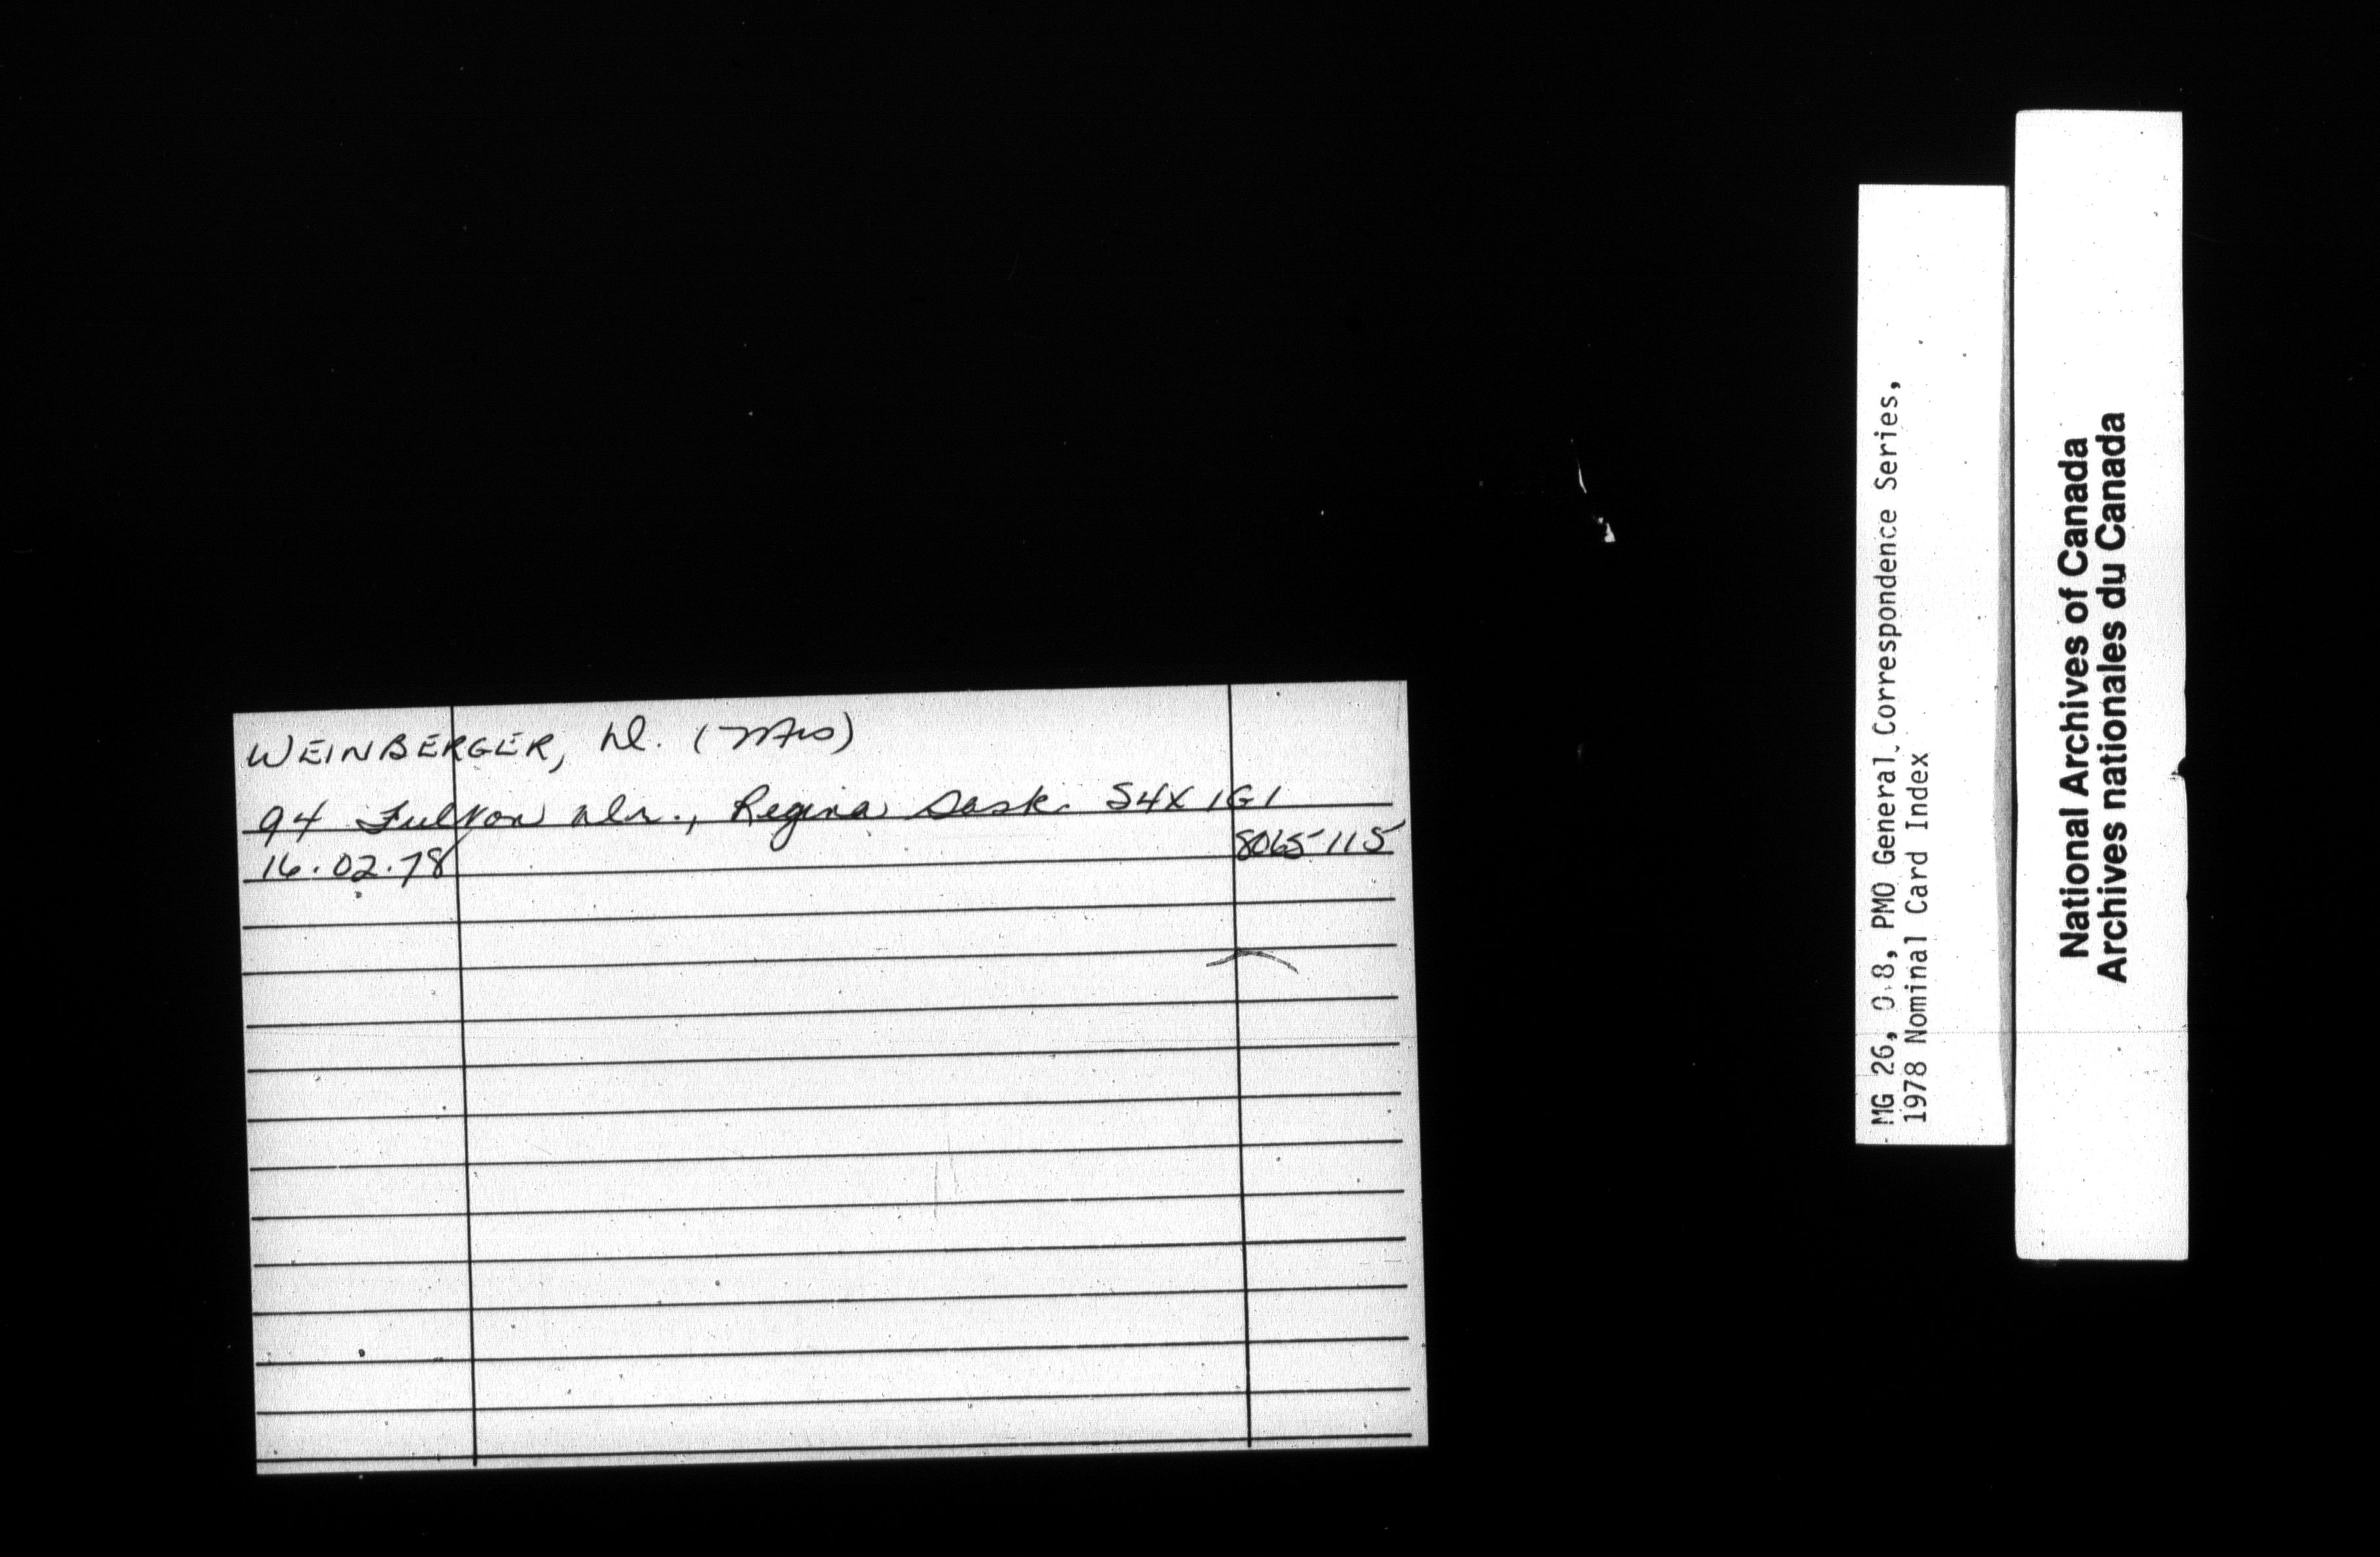 WEINBERGER, D. (Mrs)
94 Fulton Dr., Regina Sask. S4X 1G1
16.02.78 8065115
MG 26, O 8, PMO General Correspondence Series,
1978 Nominal Card Index
National Archives of Canada
Archives nationales du Canada